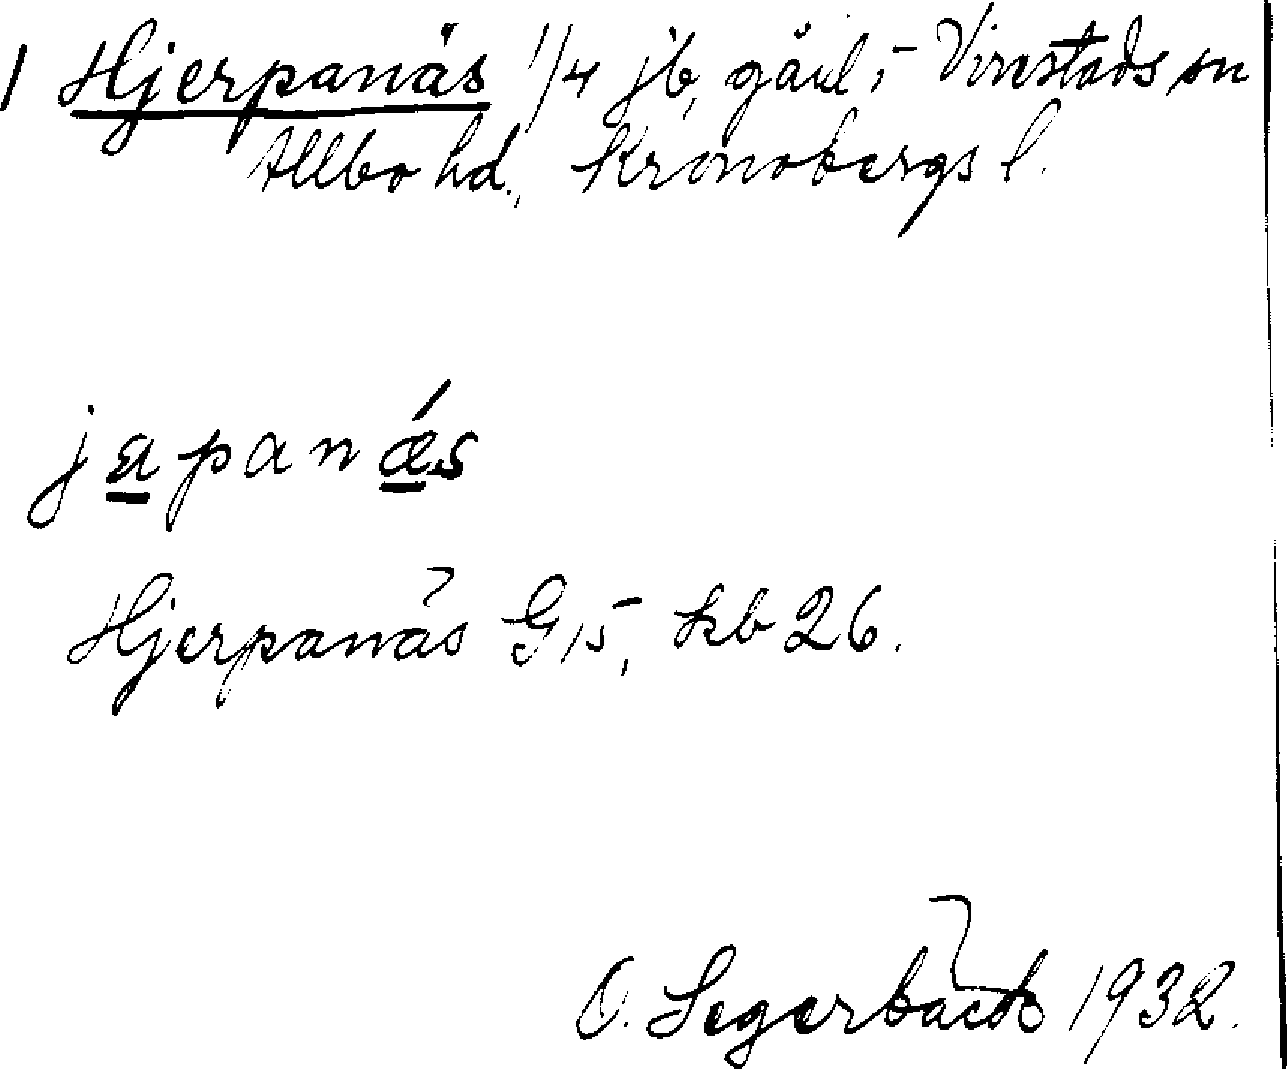 1 Hjerpanäs 1/4 jb, gård, - Virestads sn
Allbo hd., Kronobergs l.
japanǽs
Hjerpanäs G15, kb 26.
O. Segerbäck 1932.